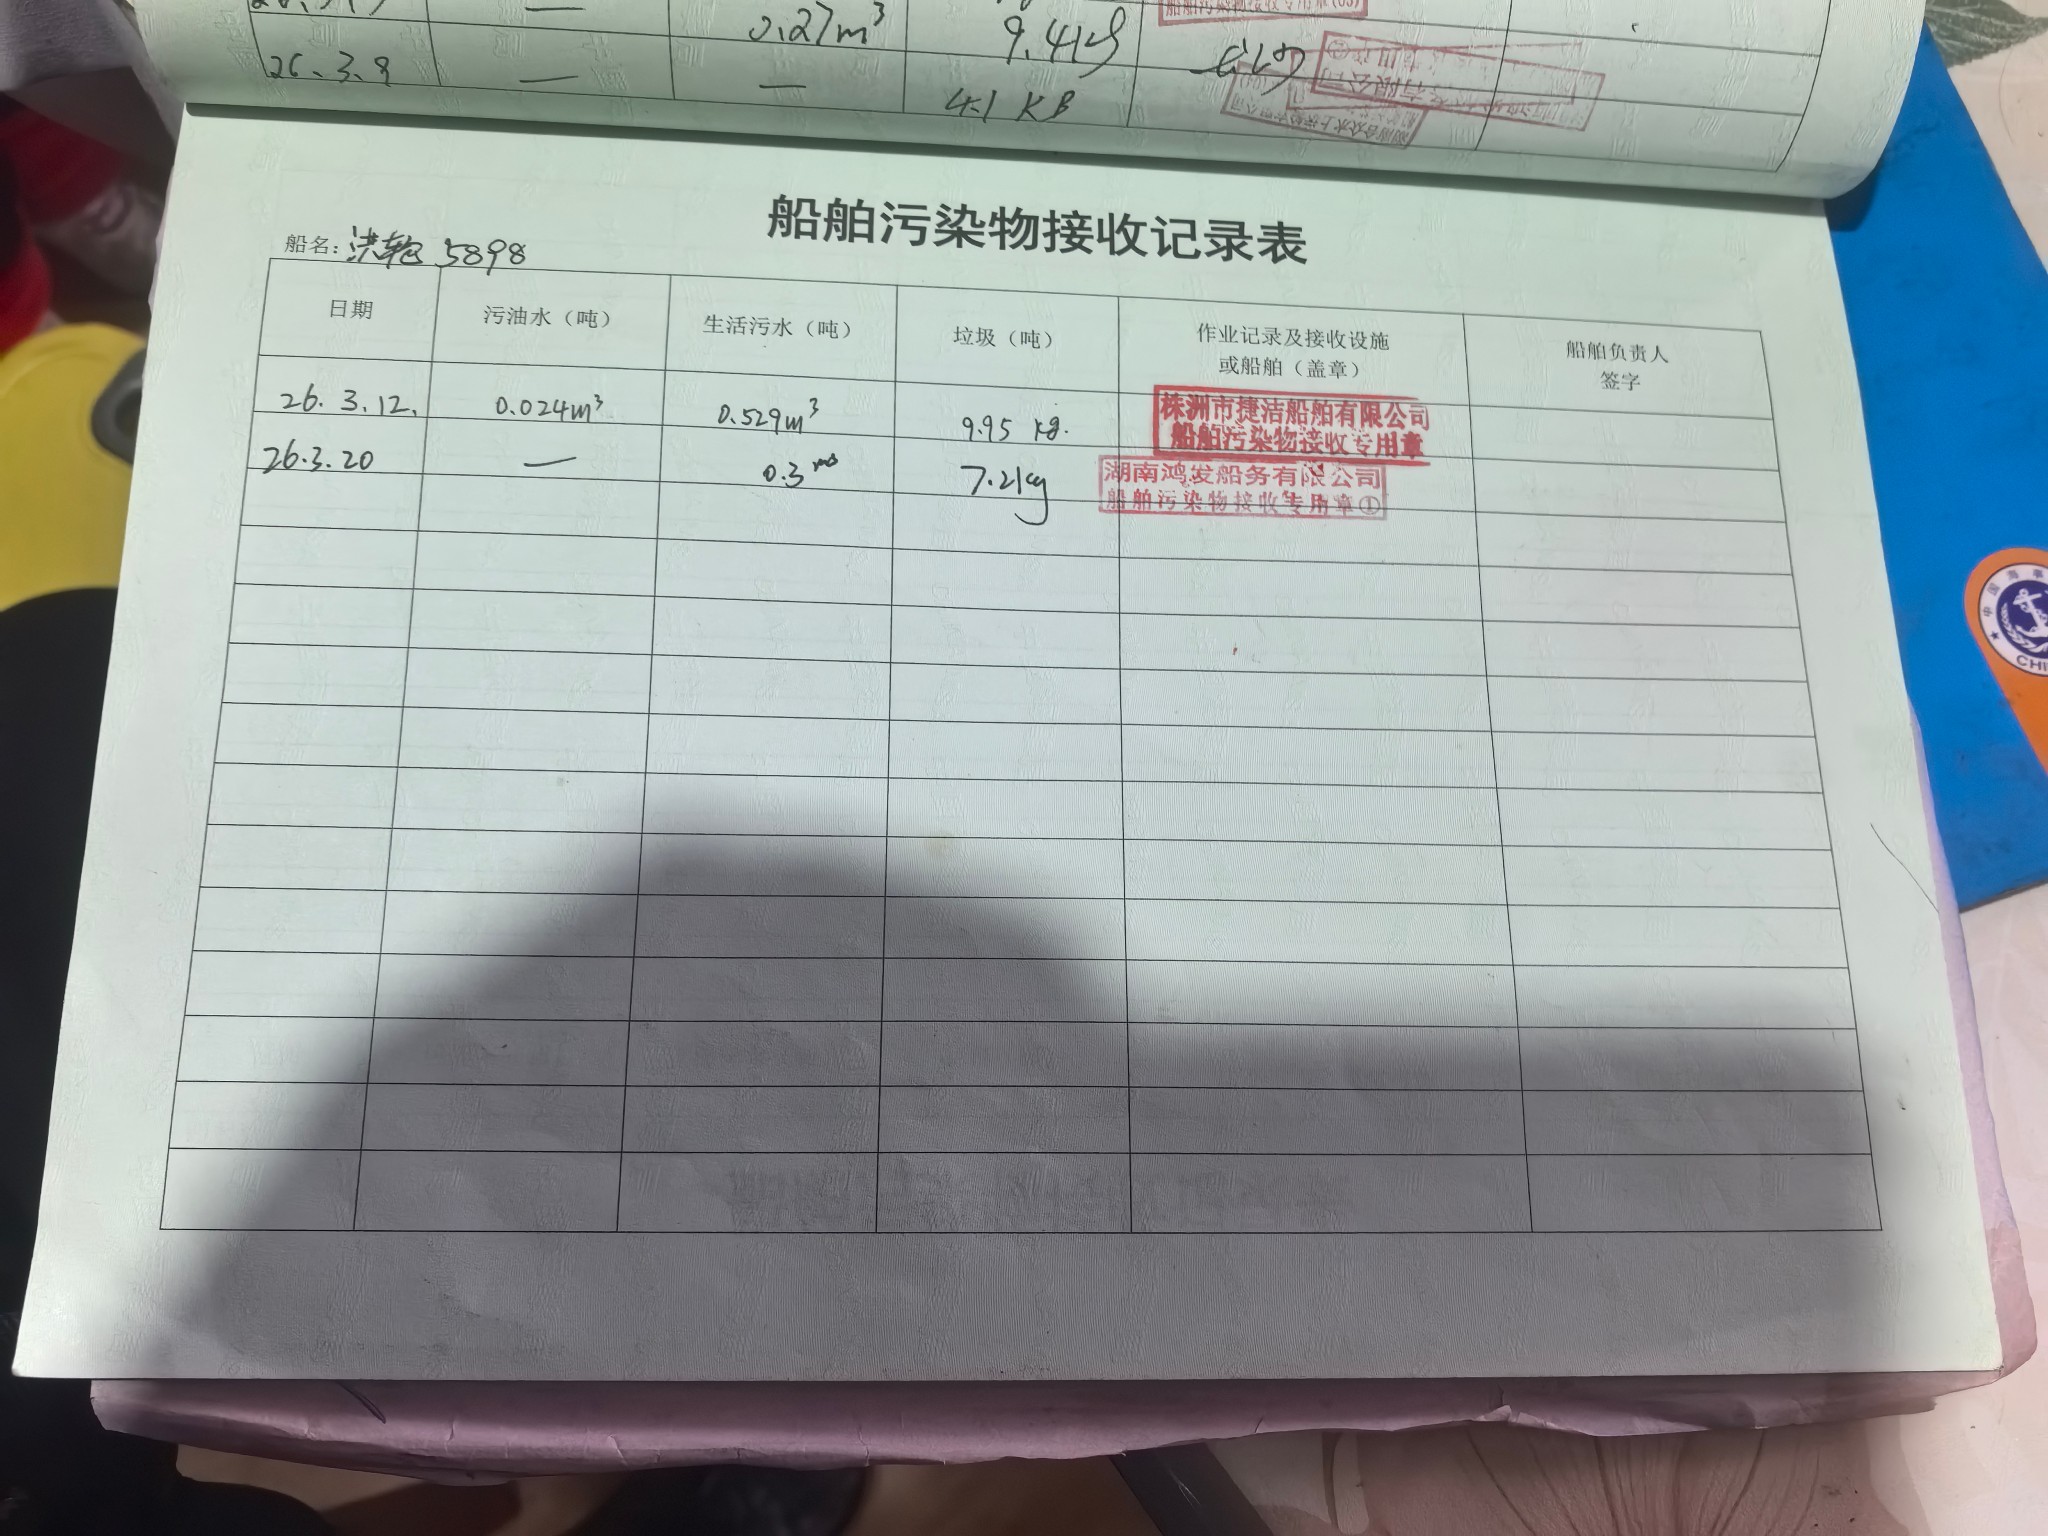 0.27m³ 9.41kg
26.3.9 — — 4.1 KB
船舶污染物接收记录表
船名: 洪翰 5898
日期 污油水（吨） 生活污水（吨） 垃圾（吨） 作业记录及接收设施 船舶负责人
或船舶（盖章） 签字
26.3.12. 0.024m³ 0.529m³ 9.95 kg. 株洲市捷洁船舶有限公司
船舶污染物接收专用章
26.3.20 — 0.3 m³ 7.2kg 湖南鸿发船务有限公司
船舶污染物接收专用章①
中国海事
CHI